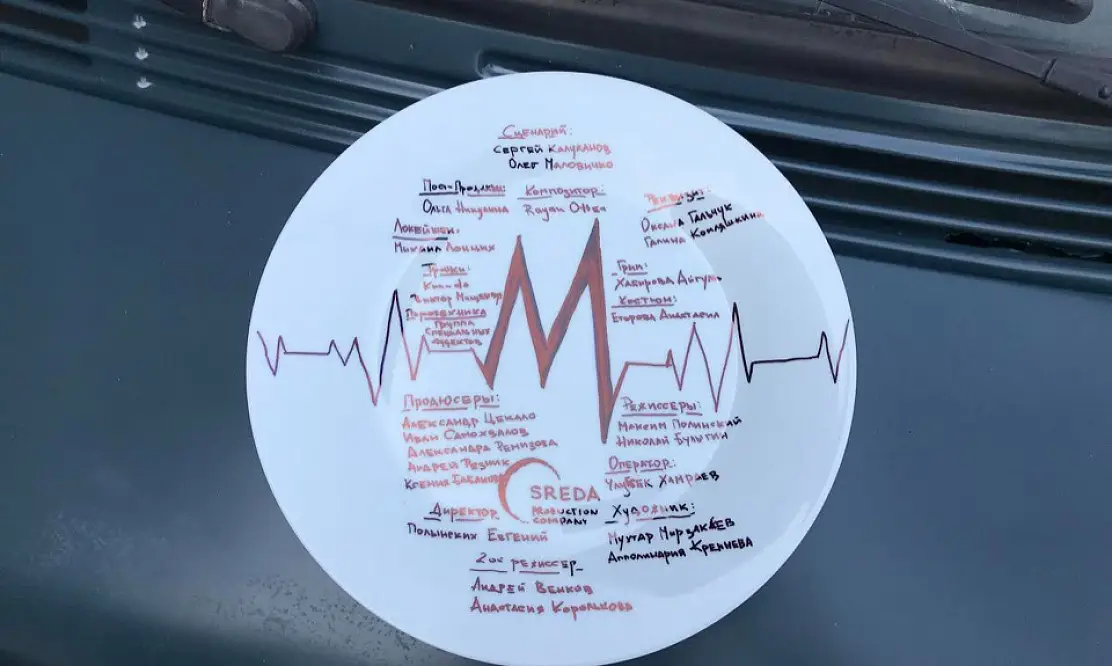 Сценарий:
Сергей Калужанов
Олег Маловичко
Пост-Продакшн:
Ольга Никулина
Композитор:
Ryan Otter
Реквизит:
Оксана Гальчук
Галина Конляшкина
Локейшен:
Михаил Лонших
Трюки:
Виктор
Пиротехника
Группа
Специальных
эффектов
Грим:
Хабирова Айгуль
Костюм:
Егорова Анастасия
М
Продюсеры:
Александр Цекало
Иван Самохвалов
Александра Ремизова
Андрей Резник
Ксения
Режиссеры:
Максим Полинский
Николай Булыгин
Оператор:
Улугбек Хамраев
SREDA
PRODUCTION
COMPANY
Директор
Полынских Евгений
Художник:
Мухтар Мирзакеев
Апполинария Кренцева
2ой режиссер
Андрей Венков
Анастасия Королькова